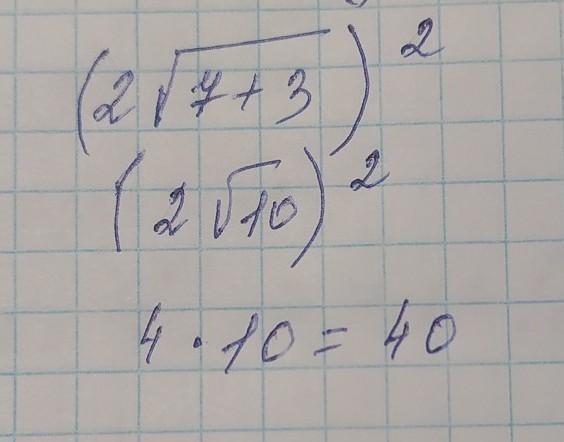 (2√(7+3))²
(2√10)²
4 · 10 = 40